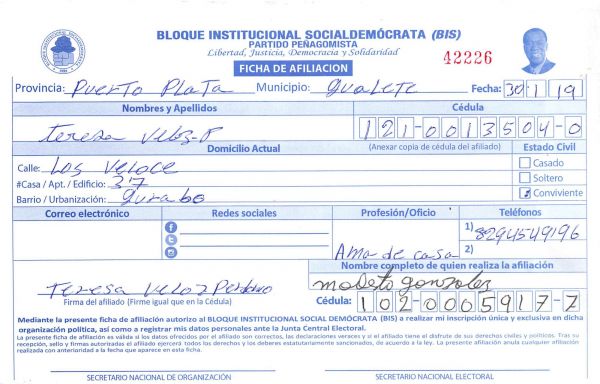 BLOQUE INSTITUCIONAL SOCIALDEMÓCRATA (BIS)
PARTIDO PEÑAGOMISTA
Libertad, Justicia, Democracia y Solidaridad
42226
FICHA DE AFILIACION
Provincia: Puerto Plata Municipio: Gualete Fecha: 30 1 19
Nombres y Apellidos Cédula
Teresa Veloz P 121-0013504-0
Domicilio Actual (Anexar copia de cédula del afiliado) Estado Civil
Calle: Los Veloce Casado
#Casa / Apt. / Edificio: 37 Soltero
Barrio / Urbanización: Gurabo Conviviente
Correo electrónico Redes sociales Profesión/Oficio Teléfonos
1) 8294549196
Ama de casa 2)
Nombre completo de quien realiza la afiliación
Teresa Veloz Perdomo modesto gonzalez
Firma del afiliado (Firme igual que en la Cédula) Cédula: 102-0005917-7
Mediante la presente ficha de afiliación autorizo al BLOQUE INSTITUCIONAL SOCIAL DEMÓCRATA (BIS) a realizar mi inscripción única y exclusiva en dicha
organización política, así como a registrar mis datos personales ante la Junta Central Electoral.
La presente ficha de afiliación es válida si los datos ofrecidos por el afiliado son correctos, las declaraciones veraces y si el afiliado tiene el disfrute de sus derechos civiles y políticos. Tras su
recepción, sello y firmas autorizadas el afiliado ejercerá todos los derechos y los deberes estatutariamente sancionados, de acuerdo a la ley. La presente afiliación anula cualquier afiliación
realizada con anterioridad a la fecha que aparece en esta ficha.
SECRETARIO NACIONAL DE ORGANIZACIÓN SECRETARIO NACIONAL ELECTORAL